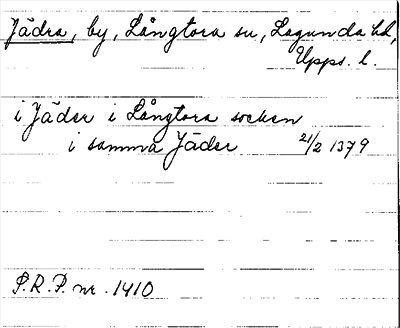 Jädra, by, Långtora sn, Lagunda hd,
Upps. l.
i Jäder i Långtora socken
i samma Jäder 21/2 1379
P.R.P. nr. 1410